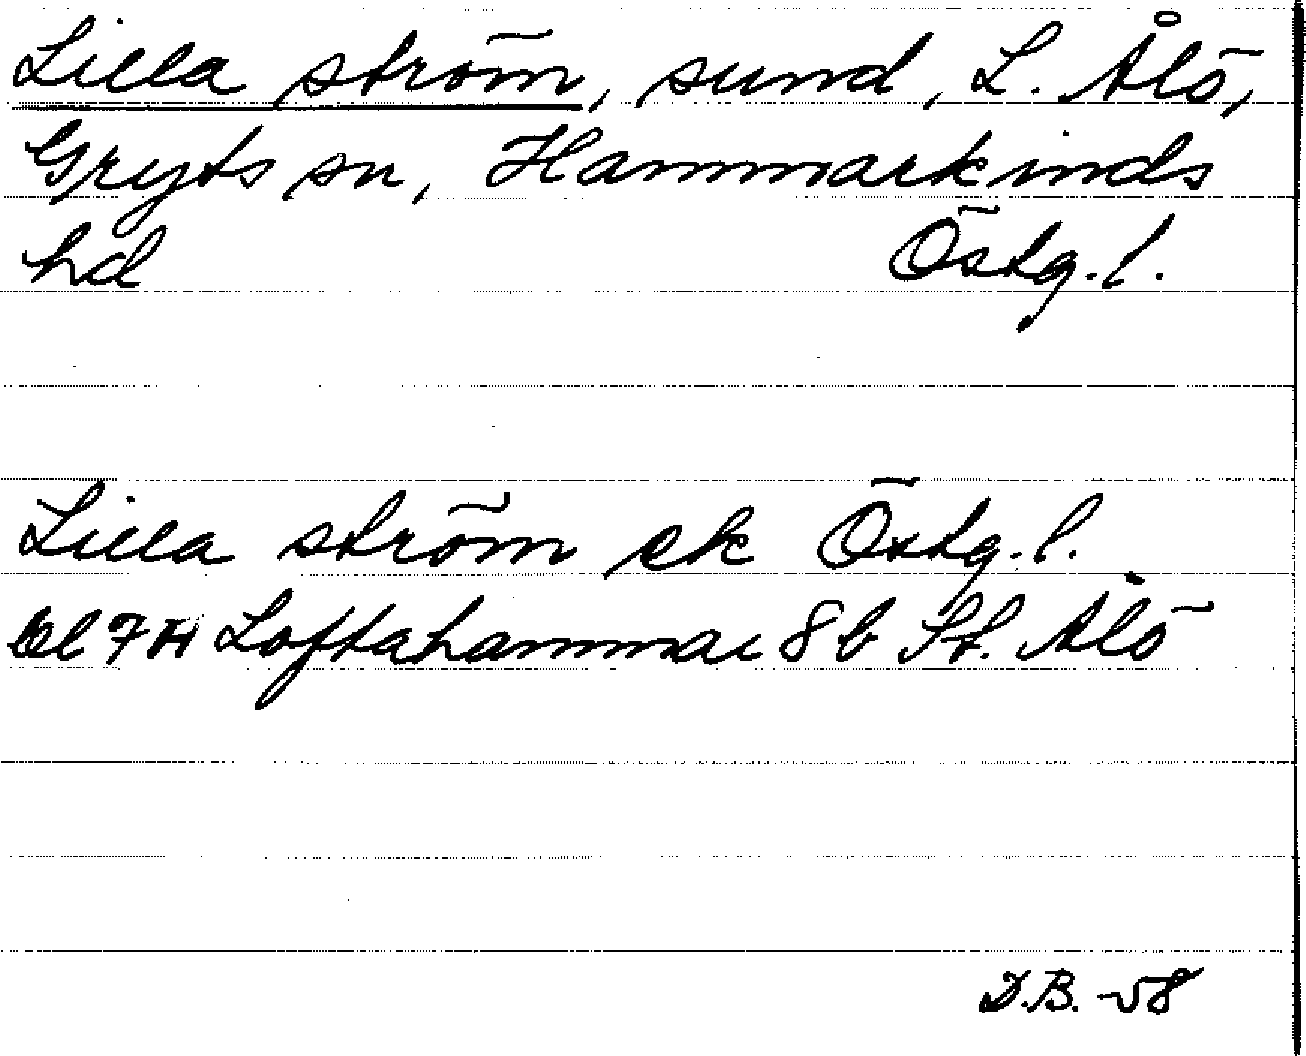 Lilla ström, sund, L. Ålö,
Gryts sn, Hammarkinds
hd Östg.l.
Lilla ström ek Östg.l.
bl 7H Loftahammar 8b St. Ålö
D.B. -58